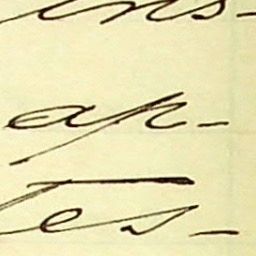 ins-
ap-
tes-